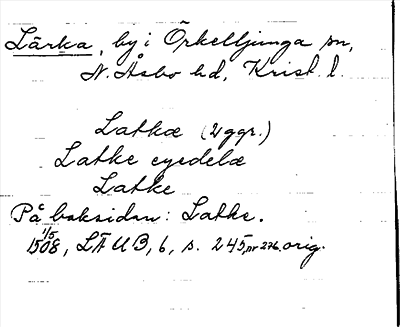 Lärka, by i Örkelljunga sn,
N. Åsbo hd, Krist. l.
Latkæ (2 ggr.)
Latke eyedelæ
Latke
På baksidan: Latke.
1/5 1508, LÄUB, 6, s. 245, nr 276. orig.